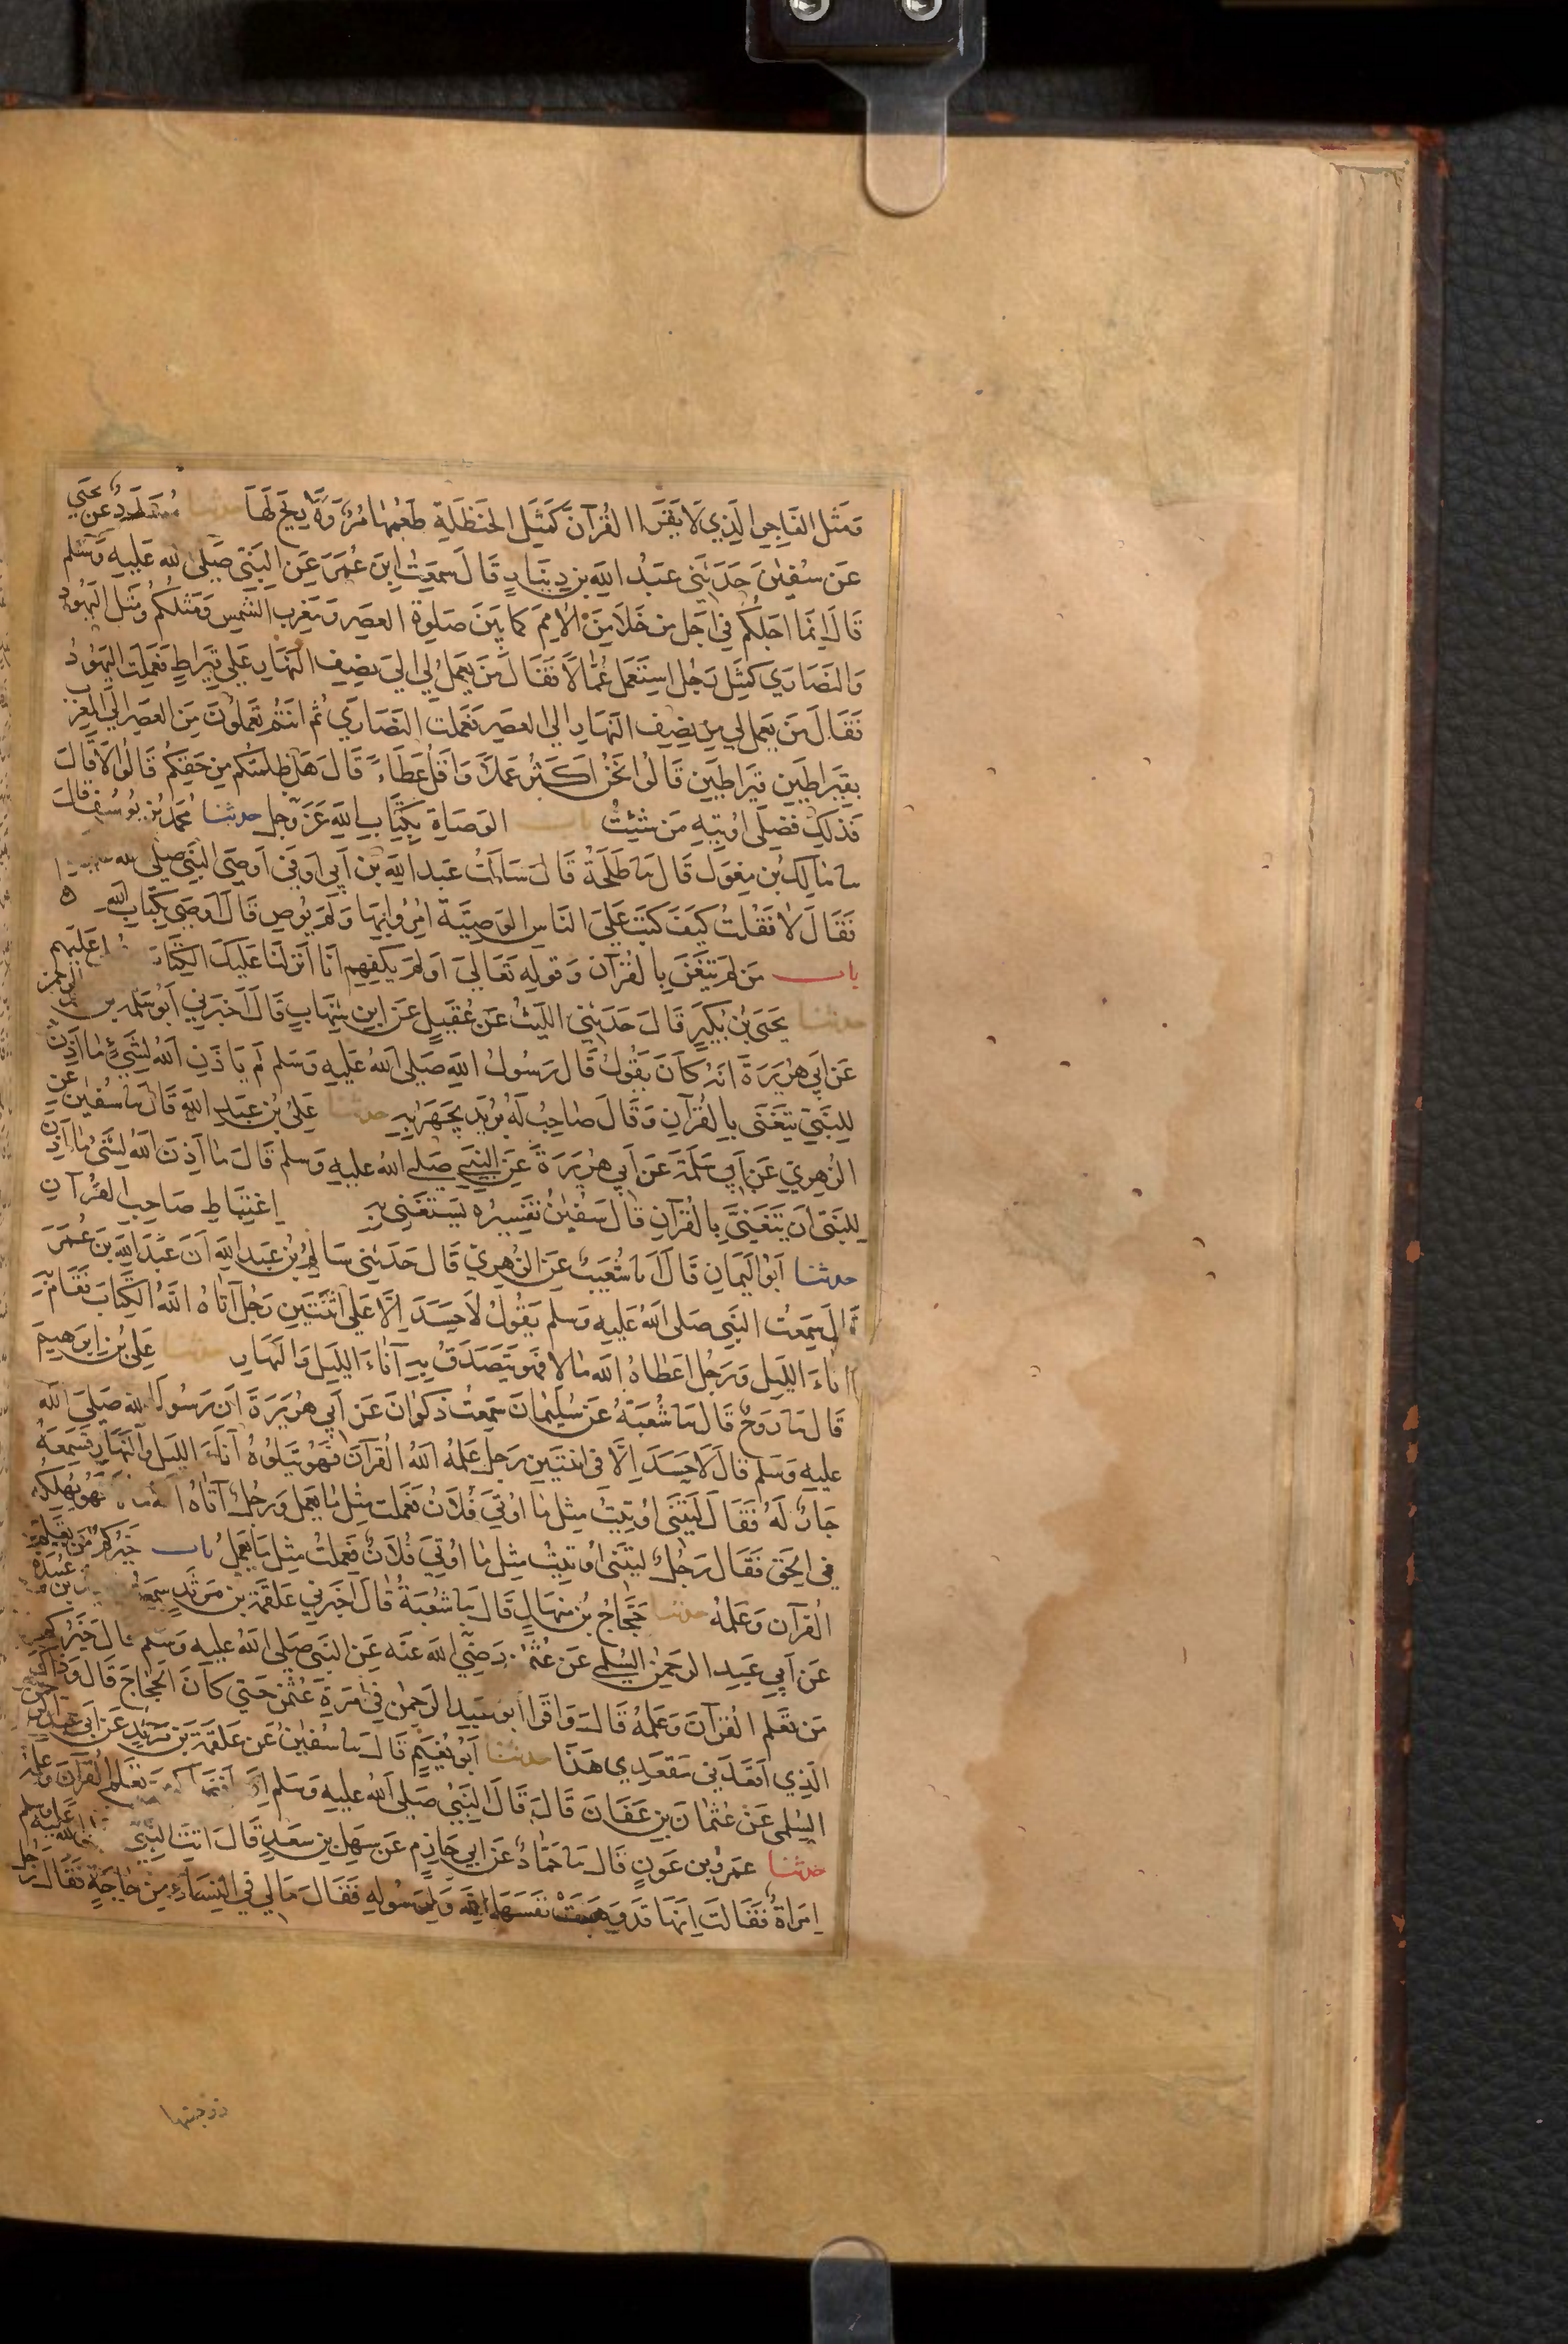 وَمَثَلُ الفَاجِرِ الَّذِي لَا يَقْرَأُ القُرْآنَ كَمَثَلِ الحَنْظَلَةِ طَعْمُهَا مُرٌّ وَلَا رِيحَ لَهَا حدثنا مُسَدَّدٌ عَنْ يَحْيَى
عَنْ سُفْيٰنَ حَدَّثَنِي عَبْدُ اللهِ بن دِينَارٍ قَالَ سَمِعْتُ ابنَ عُمَرَ عَنِ النَّبِيِّ صَلَّى اللهُ عَلَيْهِ وَسَلَّم
قَالَ اِنَّمَا اَجَلُكُمْ فِي اَجَلِ مَن خَلَا مِنَ الاُمَمِ كَمَا بَيْنَ صَلٰوةِ العَصْرِ وَمَغْرِبِ الشَّمْسِ وَمَثَلُكُمْ وَمَثَلُ اليَهُودِ
وَالنَّصَارَي كَمَثَلِ رَجُلٍ اسْتَعْمَلَ عُمَّالًا فَقَالَ مَنْ يَعْمَلُ لِي اِلَى نِصْفِ النَّهَارِ عَلَى قِيرَاطٍ فَعَمِلَتِ اليَهُودُ
فَقَالَ مَن يَعْمَلُ لِي مِنْ نِصْفِ النَّهَارِ اِلَي العَصْرِ فَعَمِلَتِ النَّصَارَي ثُمَّ اَنْتُمْ تَعْمَلُونَ مِنَ العَصْرِ اِلَي المَغْرِبِ
بِقِيرَاطَيْنِ قِيرَاطَيْنِ قَالُوا نَحْنُ اَكْثَرُ عَمَلًا وَاَقَلُّ عَطَاءً قَالَ هَلْ ظَلَمْتُكُمْ مِنْ حَقِّكُمْ قَالُوا لَا قَالَ
فَذٰلِكَ فَضْلِي اُوتِيهِ مَن شِئْتُ باب الوَصَاةِ بِكِتَابِ اللهِ عَزَّ وَجَلَّ حدثنا مُحَمَّدُ بْنُ يُوسُفَ قَالَ
نَا مَالِكُ بْنُ مِغْوَلٍ قَالَ نَا طَلْحَةُ قَالَ سَأَلْتُ عَبْدَ اللهِ بْنَ اَبِي اَوْفَي اَوْصَى النَّبِيُّ صَلَّى الله
فَقَالَ لَا فَقُلْتُ كَيْفَ كُتِبَ عَلَى النَّاسِ الوَصِيَّةُ اُمِرُوا بِهَا وَلَمْ يُوصِ قَالَ اَوْصَي بِكِتَابِ اللهِ
باب مَنْ لَمْ يَتَغَنَّ بِالقُرْآنِ وَقَوْلِهِ تَعَالَى اَوَلَمْ يَكْفِهِمْ اَنَّا اَنْزَلْنَا عَلَيْكَ الكِتَابَ عَلَيْهِمْ
حدثنا يَحْيَى بْنُ بُكَيْرٍ قَالَ حَدَّثَنِي اللَّيْثُ عَنْ عُقَيْلٍ عَنِ ابْنِ شِهَابٍ قَالَ اَخْبَرَنِي اَبُو سَلَمَةَ بن الرحمن
عَنْ اَبِي هُرَيْرَةَ اَنَّهُ كَانَ يَقُولُ قَالَ رَسُولُ اللهِ صَلَّى اللهُ عَلَيْهِ وَسَلَّمَ لَمْ يَاذَنِ اللهُ لِشَيْءٍ مَا اَذِنَ
لِلنَّبِيِّ يَتَغَنَّى بِالقُرْآنِ وَقَالَ صَاحِبٌ لَهُ يُرِيدُ يَجْهَرُ بِهِ حدثنا عَلِيُّ بْنُ عَبْدِ اللهِ قَالَ نَا سُفْيٰنُ عَنِ
الزُّهْرِيِّ عَنْ اَبِي سَلَمَةَ عَنْ اَبِي هُرَيْرَةَ عَنِ النَّبِيِّ صَلَّى اللهُ عَلَيْهِ وَسَلَّم قَالَ مَا اَذِنَ اللهُ لِشَيْءٍ مَا اَذِنَ
لِلنَّبِيِّ اَنْ يَتَغَنَّى بِالقُرْآنِ قَالَ سُفْيٰنُ تَفْسِيرُهُ يَسْتَغْنِي بِهِ اِغْتِبَاطِ صَاحِبِ القُرْآنِ
حدثنا اَبُو اليَمَانِ قَالَ اَنَا شُعَيْبٌ عَنِ الزُّهْرِيِّ قَالَ حَدَّثَنِي سَالِمُ بْنُ عَبْدِ اللهِ اَنَّ عَبْدَ اللهِ بْنَ عُمَرَ
قَالَ سَمِعْتُ النَّبِيَّ صَلَّى اللهُ عَلَيْهِ وَسَلَّم يَقُولُ لَا حَسَدَ اِلَّا عَلَى اثْنَتَيْنِ رَجُلٌ آتَاهُ اللهُ الكِتَابَ فَقَامَ بِهِ
آنَاءَ اللَّيْلِ وَرَجُلٌ اَعْطَاهُ اللهُ مَالًا فَهُوَ يَتَصَدَّقُ بِهِ آنَاءَ اللَّيْلِ وَالنَّهَارِ حدثنا عَلِيُّ بْنُ اِبْرٰهِيمَ
قَالَ نَا رَوْحٌ قَالَ نَا شُعْبَةُ عَنْ سُلَيْمَانَ سَمِعْتُ ذَكْوَانَ عَنْ اَبِي هُرَيْرَةَ اَنَّ رَسُولَ اللهِ صَلَّى اللهُ
عَلَيْهِ وَسَلَّم قَالَ لَا حَسَدَ اِلَّا فِي اثْنَتَيْنِ رَجُلٌ عَلَّمَهُ اللهُ القُرْآنَ فَهُوَ يَتْلُوهُ آنَاءَ اللَّيْلِ وَالنَّهَارِ فَسَمِعَهُ
جَارٌ لَهُ فَقَالَ لَيْتَنِي اُوتِيتُ مِثْلَ مَا اُوتِيَ فُلَانٌ فَعَمِلْتُ مِثْلَ مَا يَعْمَلُ وَرَجُلٌ آتَاهُ اللهُ فَهُوَ يُهْلِكُهُ
فِي الحَقِّ فَقَالَ رَجُلٌ لَيْتَنِي اُوتِيتُ مِثْلَ مَا اُوتِيَ فُلَانٌ فَعَمِلْتُ مِثْلَ مَا يَعْمَلُ باب خَيْرُكُمْ مَنْ تَعَلَّمَ
القُرْآنَ وَعَلَّمَهُ حدثنا حَجَّاجُ بْنُ مِنْهَالٍ قَالَ نَا شُعْبَةُ قَالَ اَخْبَرَنِي عَلْقَمَةُ بْنُ مَرْثَدٍ سَمِعْتُ بن عُبَيْدَةَ
عَنْ اَبِي عَبْدِ الرَّحْمٰنِ السُّلَمِي عَنْ عُثْمٰنَ رَضِيَ اللهُ عَنْهُ عَنِ النَّبِيِّ صَلَّى اللهُ عَلَيْهِ وَسَلَّم قَالَ خَيْرُكُمْ
مَنْ تَعَلَّمَ القُرْآنَ وَعَلَّمَهُ قَالَ وَاَقْرَأَ اَبُو عَبْدِ الرَّحْمٰنِ فِي اِمْرَةِ عُثْمٰنَ حَتَّى كَانَ الحَجَّاجُ قَالَ وَذَاكَ
الَّذِي اَقْعَدَنِي مَقْعَدِي هَذَا حدثنا اَبُو نُعَيْمٍ قَالَ نَا سُفْيٰنُ عَنْ عَلْقَمَةَ بْنِ مَرْثَدٍ عَنْ اَبِي عَبْدِ
السُّلَمِي عَنْ عُثْمَانَ بْنِ عَفَّانَ قَالَ قَالَ النَّبِيُّ صَلَّى اللهُ عَلَيْهِ وَسَلَّم اِنَّ تَعَلَّمَ القُرْآنَ وَعَلَّمَهُ
حدثنا عَمْرُو بْنُ عَوْنٍ قَالَ نَا حَمَّادٌ عَنْ اَبِي حَازِمٍ عَنْ سَهْلِ بْنِ سَعْدٍ قَالَ اَتَتِ النَّبِيَّ عَلَيْهِ وَسَلَّم
اِمْرَاَةٌ فَقَالَتْ اِنَّهَا قَدْ وَهَبَتْ نَفْسَهَا لِلّٰهِ وَلِرَسُولِهِ فَقَالَ مَا لِي فِي النِّسَاءِ مِنْ حَاجَةٍ فَقَالَ رَجُلٌ
زوجنيها